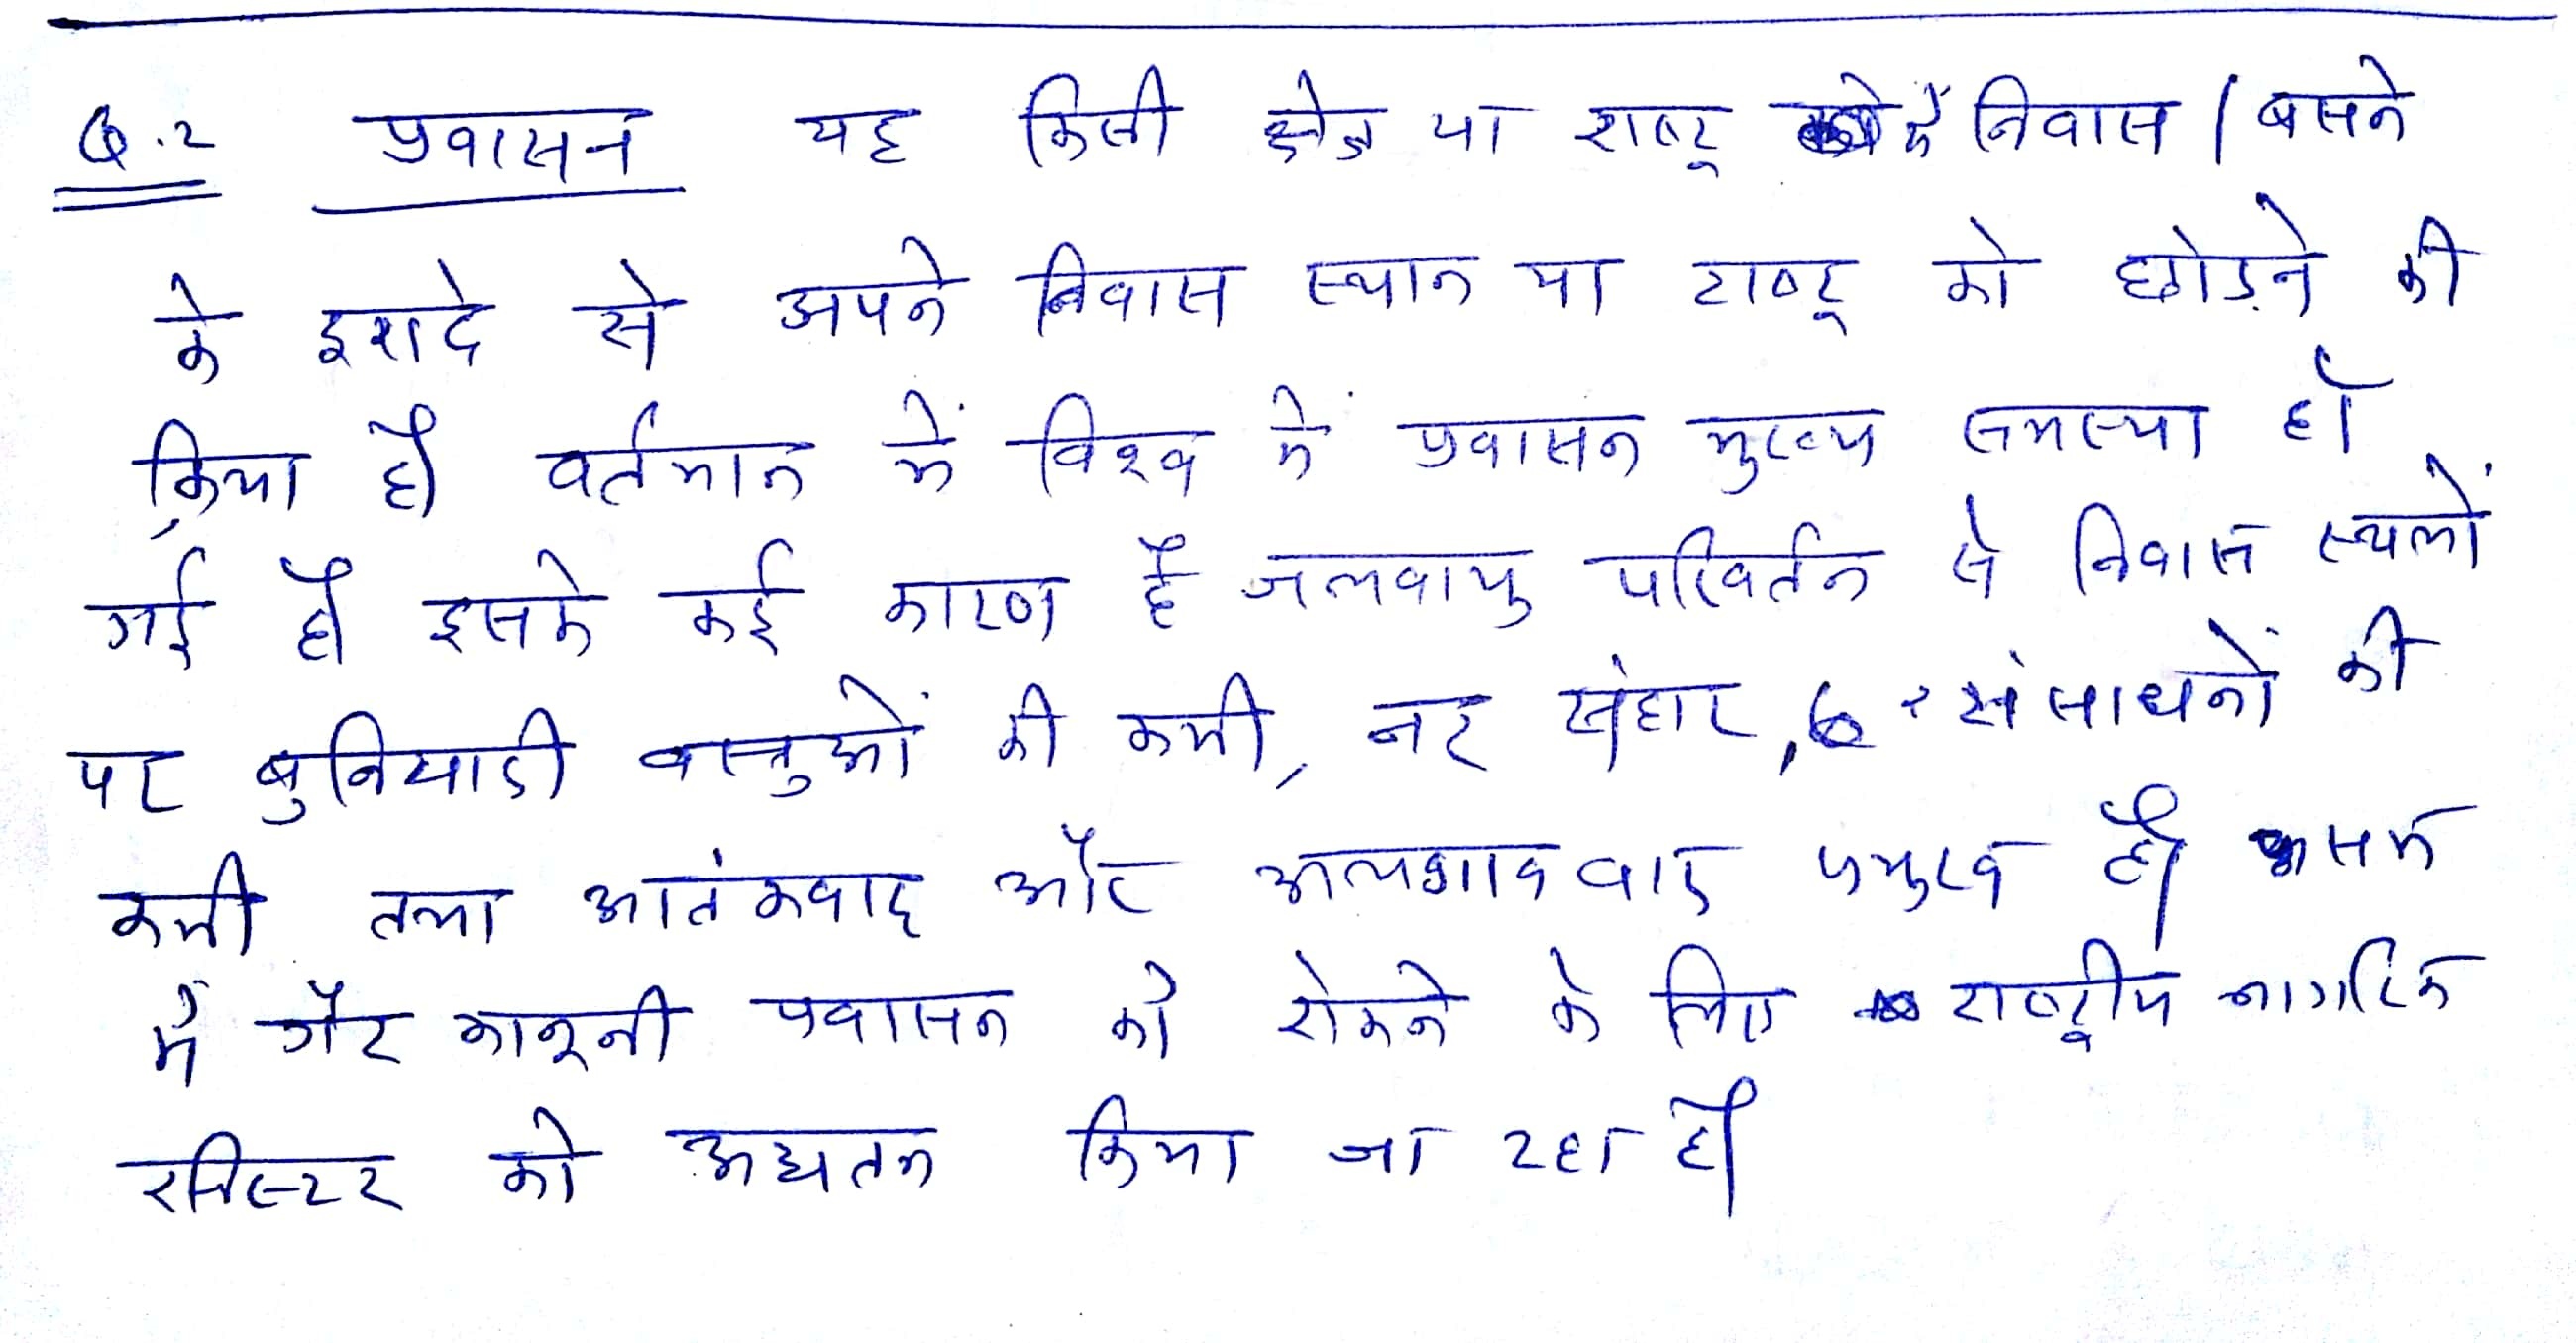 Q.2 प्रवासन यह किसी क्षेत्र या राष्ट्र में निवास / बसने
के इरादे से अपने निवास स्थान या राष्ट्र को छोड़ने की
क्रिया है। वर्तमान में विश्व में प्रवासन मुख्य समस्या हो
गई है। इसके कई कारण है जलवायु परिवर्तन से निवास स्थलों
पर बुनियादी वस्तुओं की कमी, नर संहार, संसाधनों की
कमी तथा आतंकवाद और अलगाववाद प्रमुख है। असम
में गैर कानूनी प्रवासन को रोकने के लिए राष्ट्रीय नागरिक
रजिस्टर को अद्यतन किया जा रहा है।